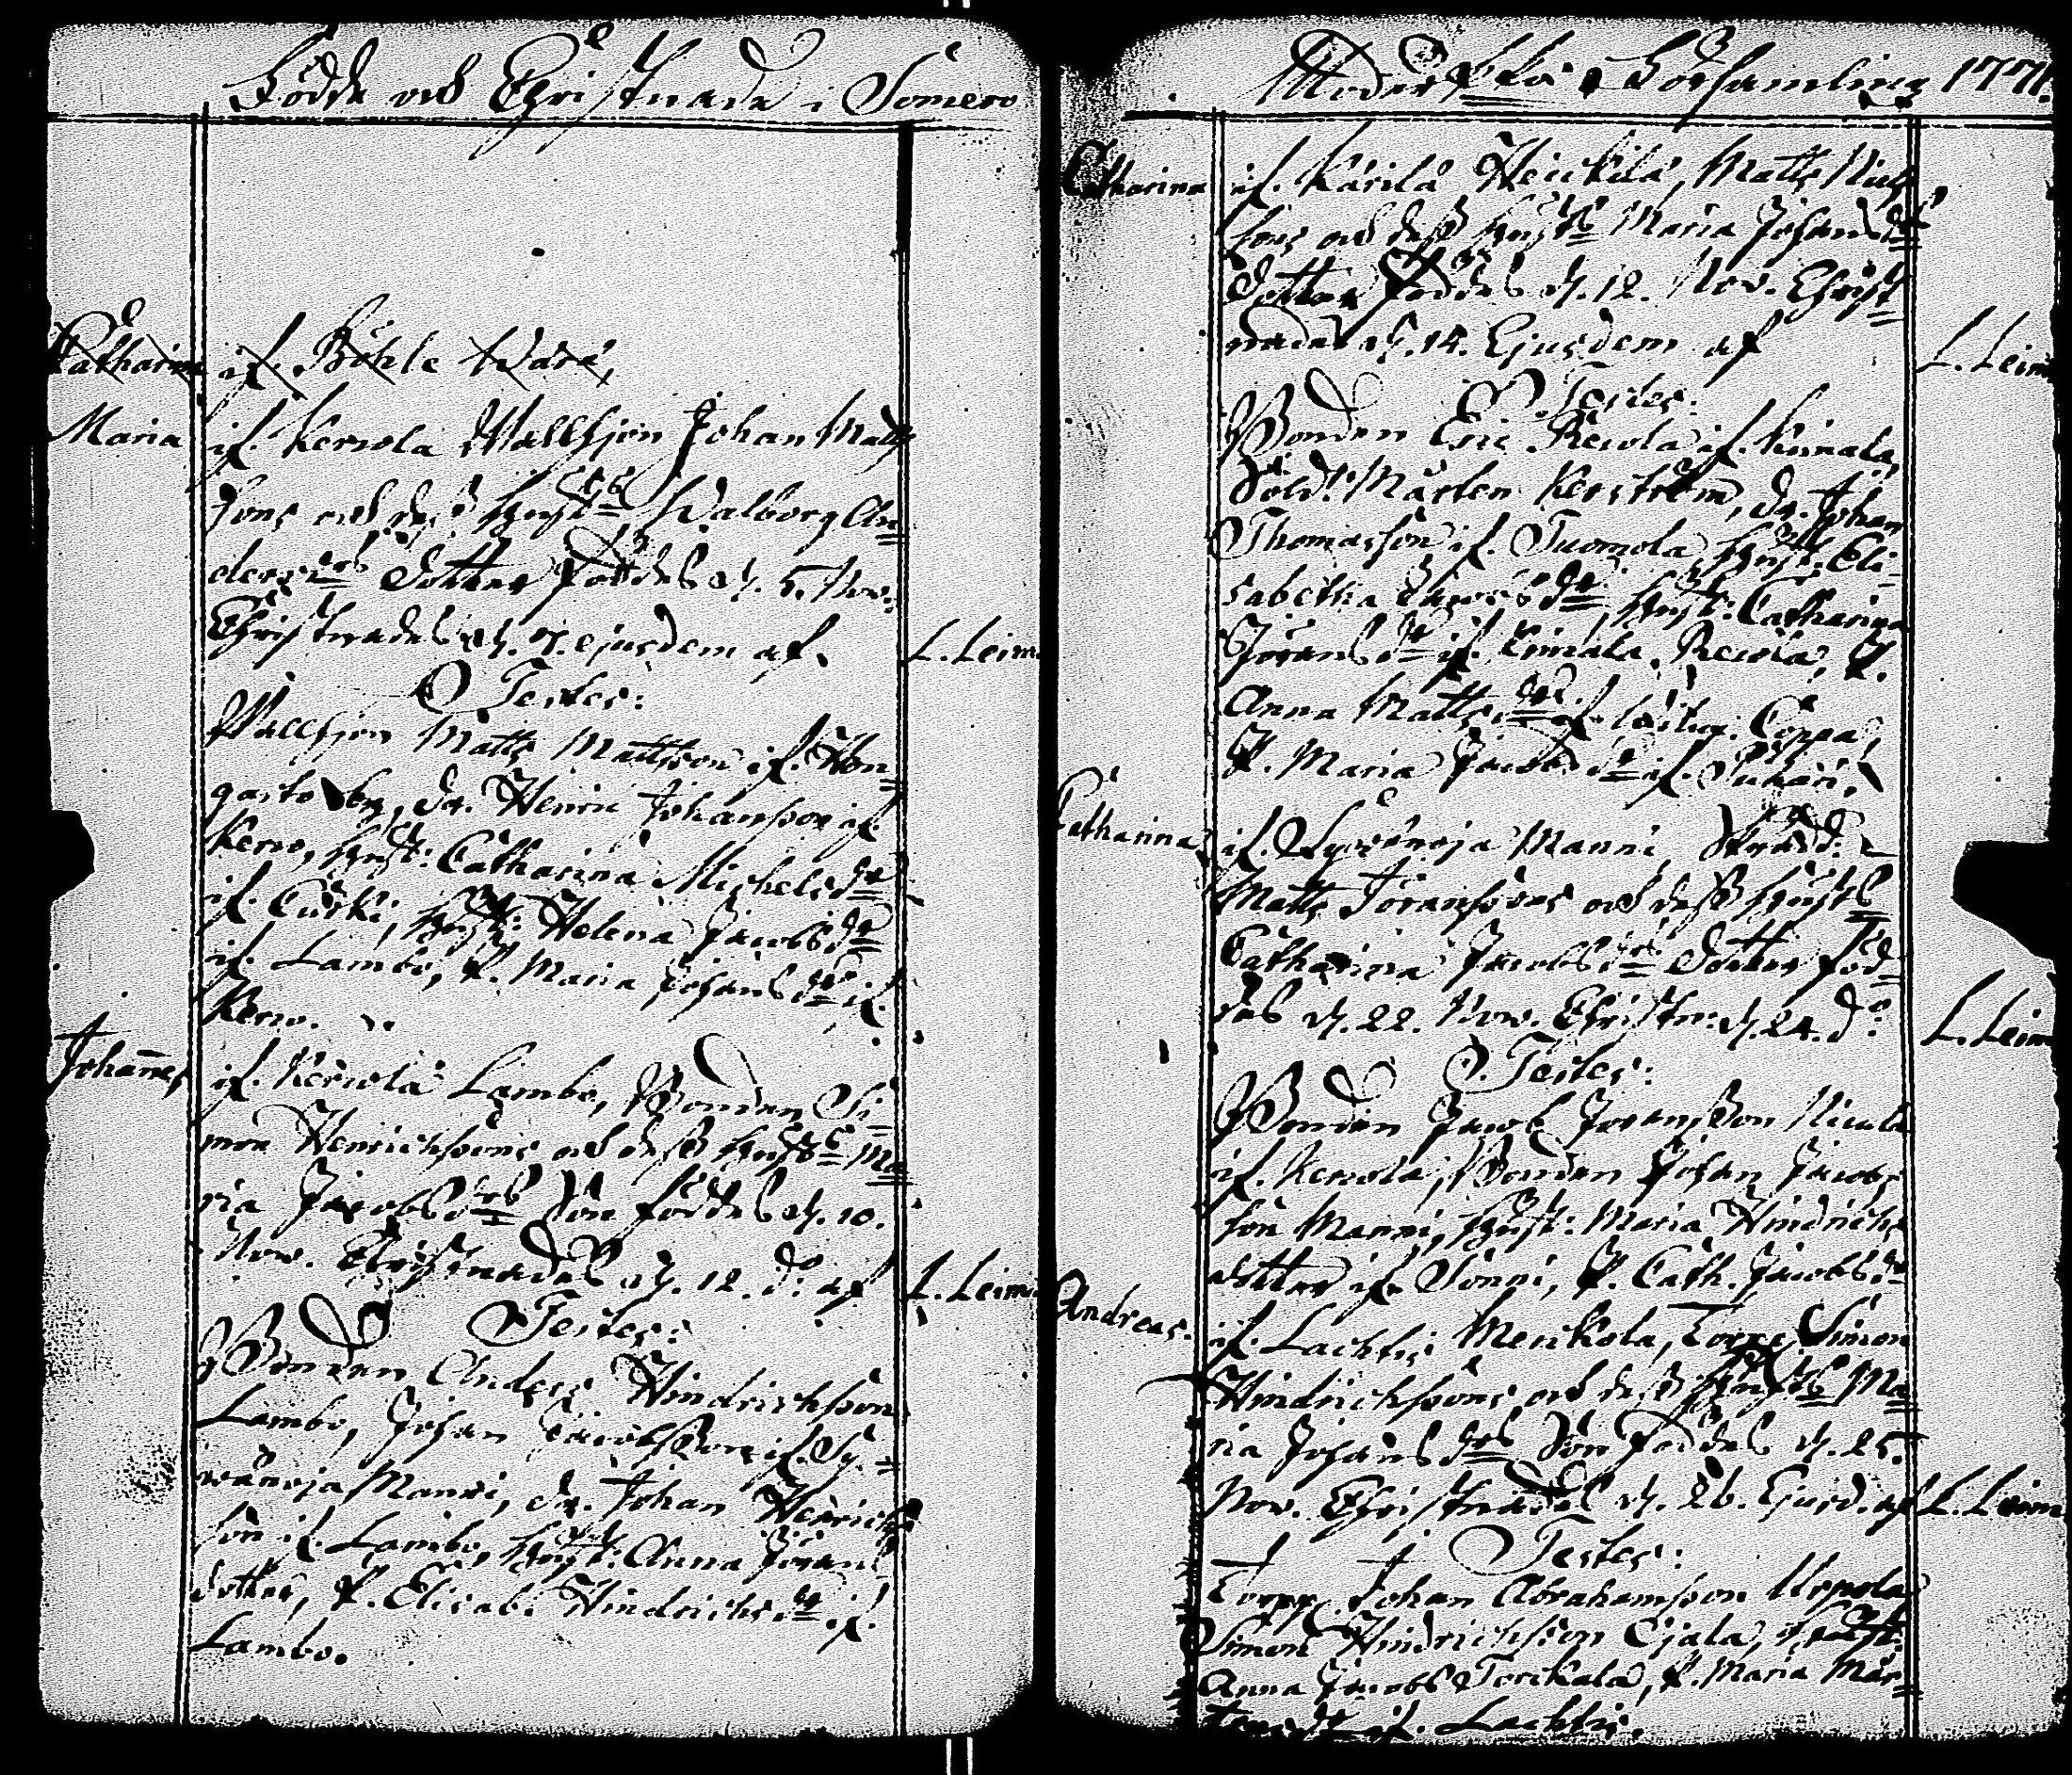 Födde och Christnade i Somero
Catharina if. Böhle Wara,
Maria if. Kerwola Wallfjon Johan Matts
sons och dess hust. Walborg An
ders drs dotter föddes d. 5. Nov.
Christnades d. 7. ejusdem af. L. Leim
Testes:
Matts Mattsson if. Hon
garto by, dr. Henric Johansson if.
Kerw, hust: Catharina Michels dr
if. Curki, hust: Helena Jacobs dr
if. Lambo, P. Maria Johans dr if.
Kerw.
Johannes if. Kerwola Lambo, Bonden Si
mon Henrichsons och dess hust. Ma
ria Jacobs drs Son föddes d. 10.
Nov. Christnades d. 12. do af L. Leim
Testes:
Bonden Anders Hindrichson
Lambo, Johan Jacobsson if. Sy
wänoja Manni, dr. Johan Henrich
son if. Lambo, hust: Anna Jörans
dotter, P. Elisab. Hindrichs dr if.
Lambo.
Moderkko Församling 1771.
Catharina if. Kärilä Heickilä, Matts
sons och dess hust. Maria Johans
dotter föddes d. 12. Nov. Christ
nades d. 14. Ejusdem af L. Leim
Testes:
Bonden Eric Rewola if. Kimala,
Sold. Mårten Kerström, dr. Johan
Thomasson if. Tuomola, hust. Eli
sabetha dr, hust: Catharina
Jörans dr if. Kimala Rewola, P.
Anna Matts dr if. Coppa,
P. Maria Jacobs dr if.
Catharina if. Sywänoja Manni,
Matts Göranssons och dess hust.
Catharina Jacobs drs dotter föd
des d. 22. Nov. Christn: d. 24. do L. Leim
Testes:
Bonden Jacob Joransson
if. Kerwola, Bonden Johan Jacobs
son Manni, hust: Maria Hindrichs
dotter if. Sonni, P. Cath. Jacobs dr
Andreas. if. Lachtis Merikola, Torpe, Simon
Hindrichsons och dess hust. Ma
ria Johans drs Son föddes d. 25.
Nov. Christnades d. 26. Ejusd. af L. Leim
Testes:
Torpp. Johan Abrahamsson Uopola
Simon Hindrichsson Ojala, hust:
Anna Jacobs Torikala, P. Maria Mår
tens dr if. Lachtis.